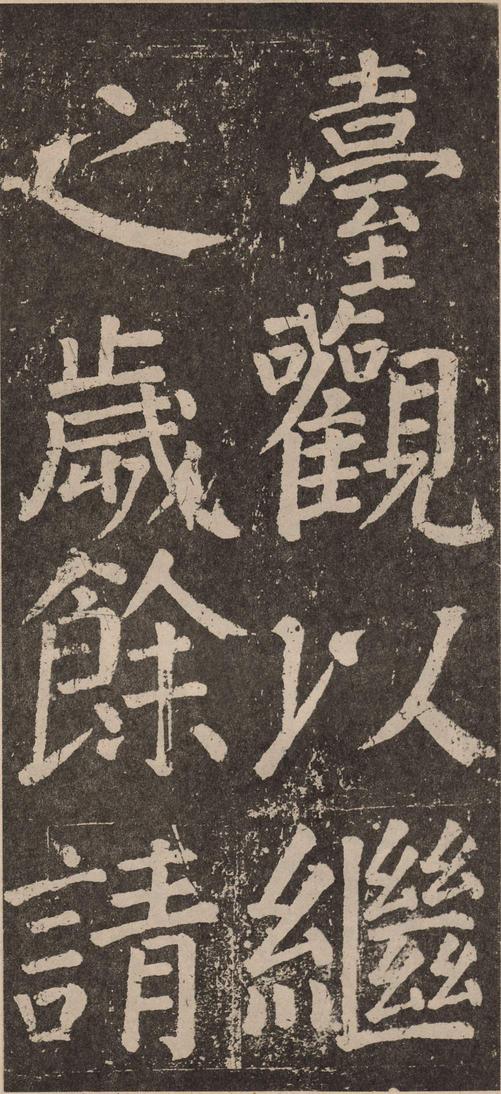 臺觀以繼
之歲餘請